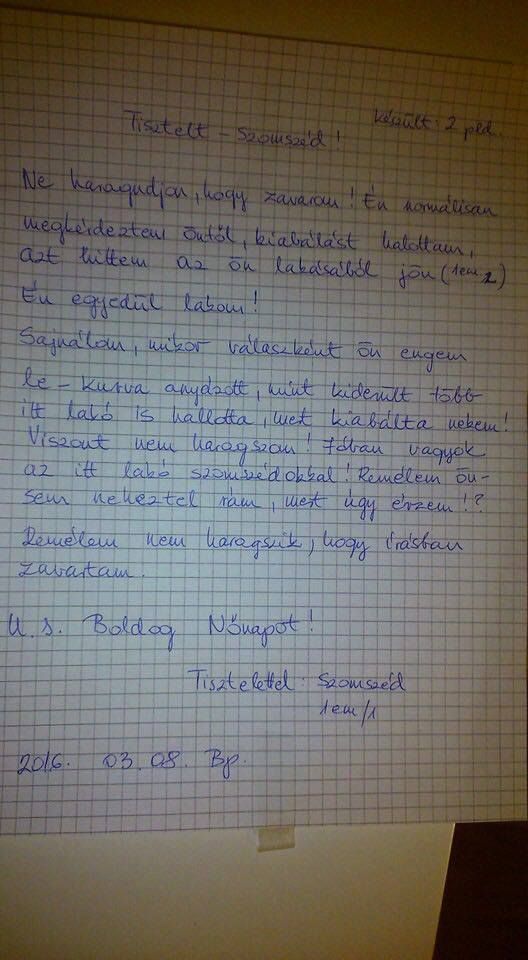 készült: 2 pld.
Tisztelt - Szomszéd!
Ne haragudjon, hogy zavarom! Én normálisan
megkérdeztem öntől, kiabálást halottam,
azt hittem az ön lakásából jön (1em 2)
Én egyedül lakom!
Sajnálom, mikor válaszként ön engem
le - kurva anyázott, mint kiderült több
itt lakó is hallotta, mert kiabálta nekem!
Viszont nem haragszom! Jóban vagyok
az itt lakó szomszédokkal! Remélem ön-
sem neheztel rám, mert úgy érzem!?
Remélem nem haragszik, hogy írásban
zavartam.
U. i. Boldog Nőnapot!
Tisztelettel: Szomszéd
1em/1
2016. 03. 08. Bp.